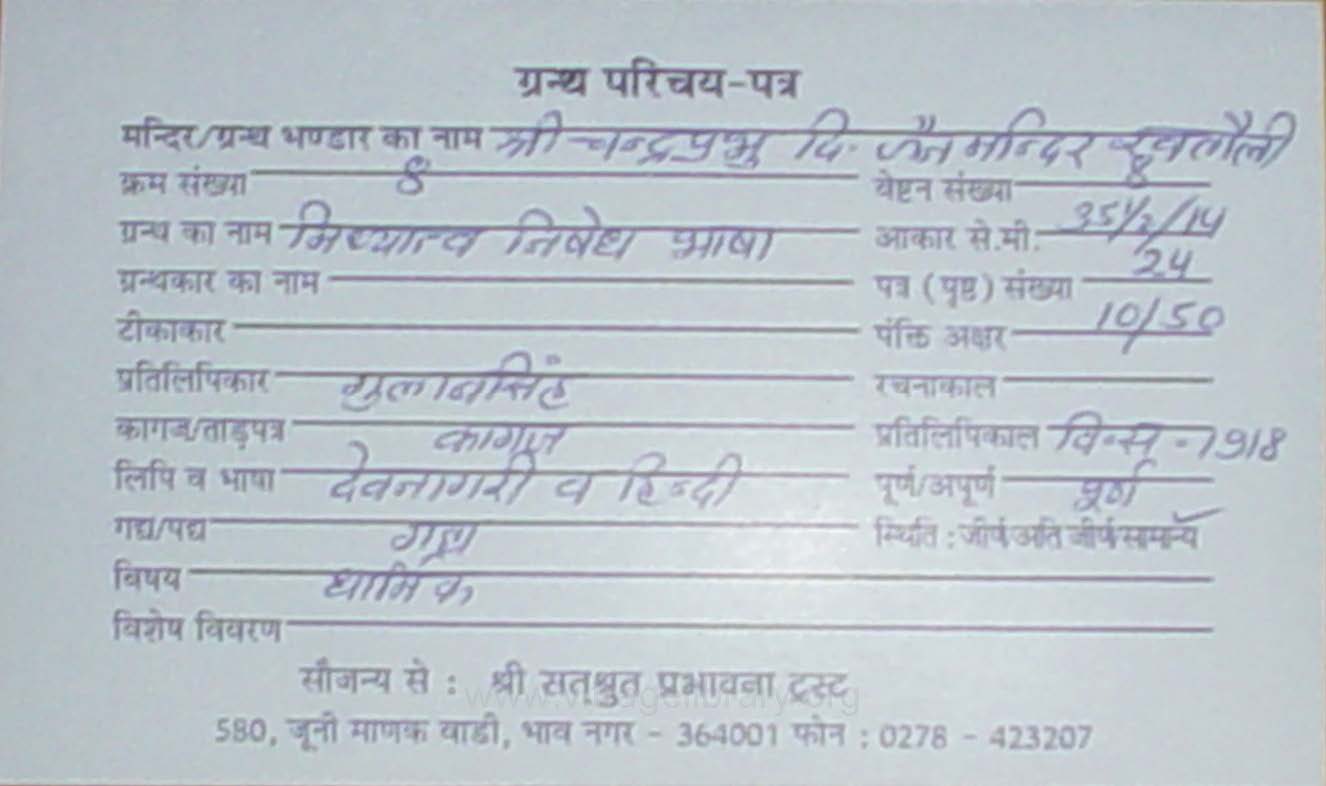 ग्रन्थ परिचय-पत्र
मन्दिर/ग्रन्थ भण्डार का नाम श्री चन्द्रप्रभु दि. जैन मन्दिर
क्रम संख्या 8 वेष्टन संख्या 8
ग्रन्थ का नाम मिथ्यात्व निषेध भाषा आकार से.मी. 35 1/2/14
ग्रन्थकार का नाम पत्र (पृष्ठ) संख्या 24
टीकाकार पंक्ति अक्षर 10/50
प्रतिलिपिकार गुलाबसिंह रचनाकाल
कागज/ताड़पत्र कागज प्रतिलिपिकाल वि.स.-1918
लिपि व भाषा देवनागरी व हिन्दी पूर्ण/अपूर्ण पूर्ण
गद्य/पद्य गद्य स्थिति : जीर्ण/अति जीर्ण/सामान्य
विषय धार्मिक
विशेष विवरण
सौजन्य से : श्री सत्श्रुत प्रभावना ट्रस्ट
580, जूनी माणक वाडी, भाव नगर - 364001 फोन : 0278 - 423207